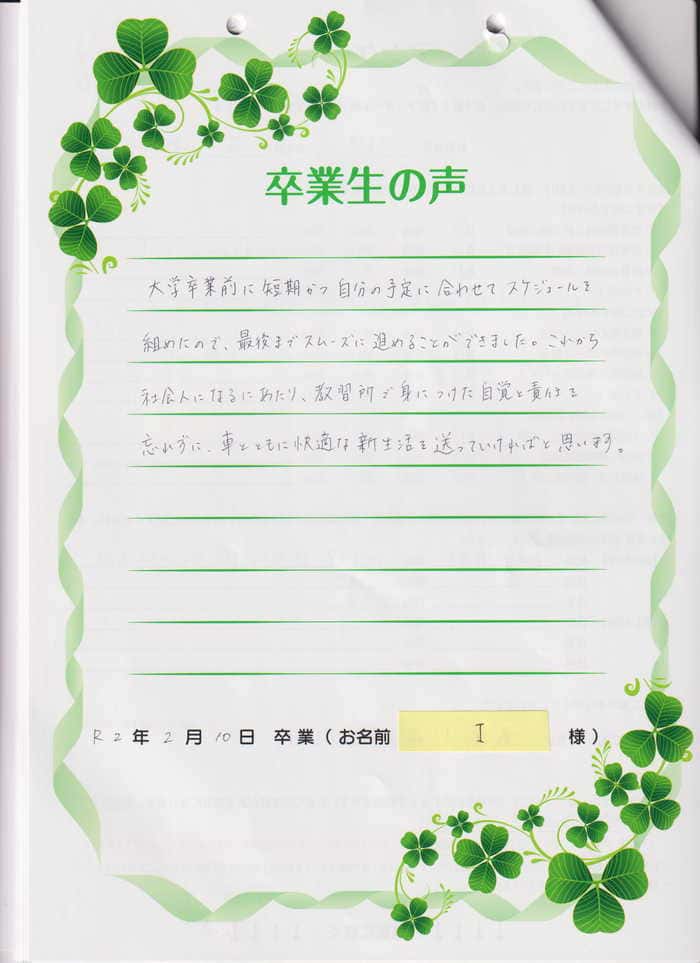 卒業生の声
大学卒業前に短期かつ自分の予定に合わせてスケジュールを
組めたので、最後までスムーズに進めることができました。これから
社会人になるにあたり、教習所で身につけた自覚と責任を
忘れずに、車とともに快適な新生活を送っていければと思います。
R2年2月10日 卒業(お名前 I 様)